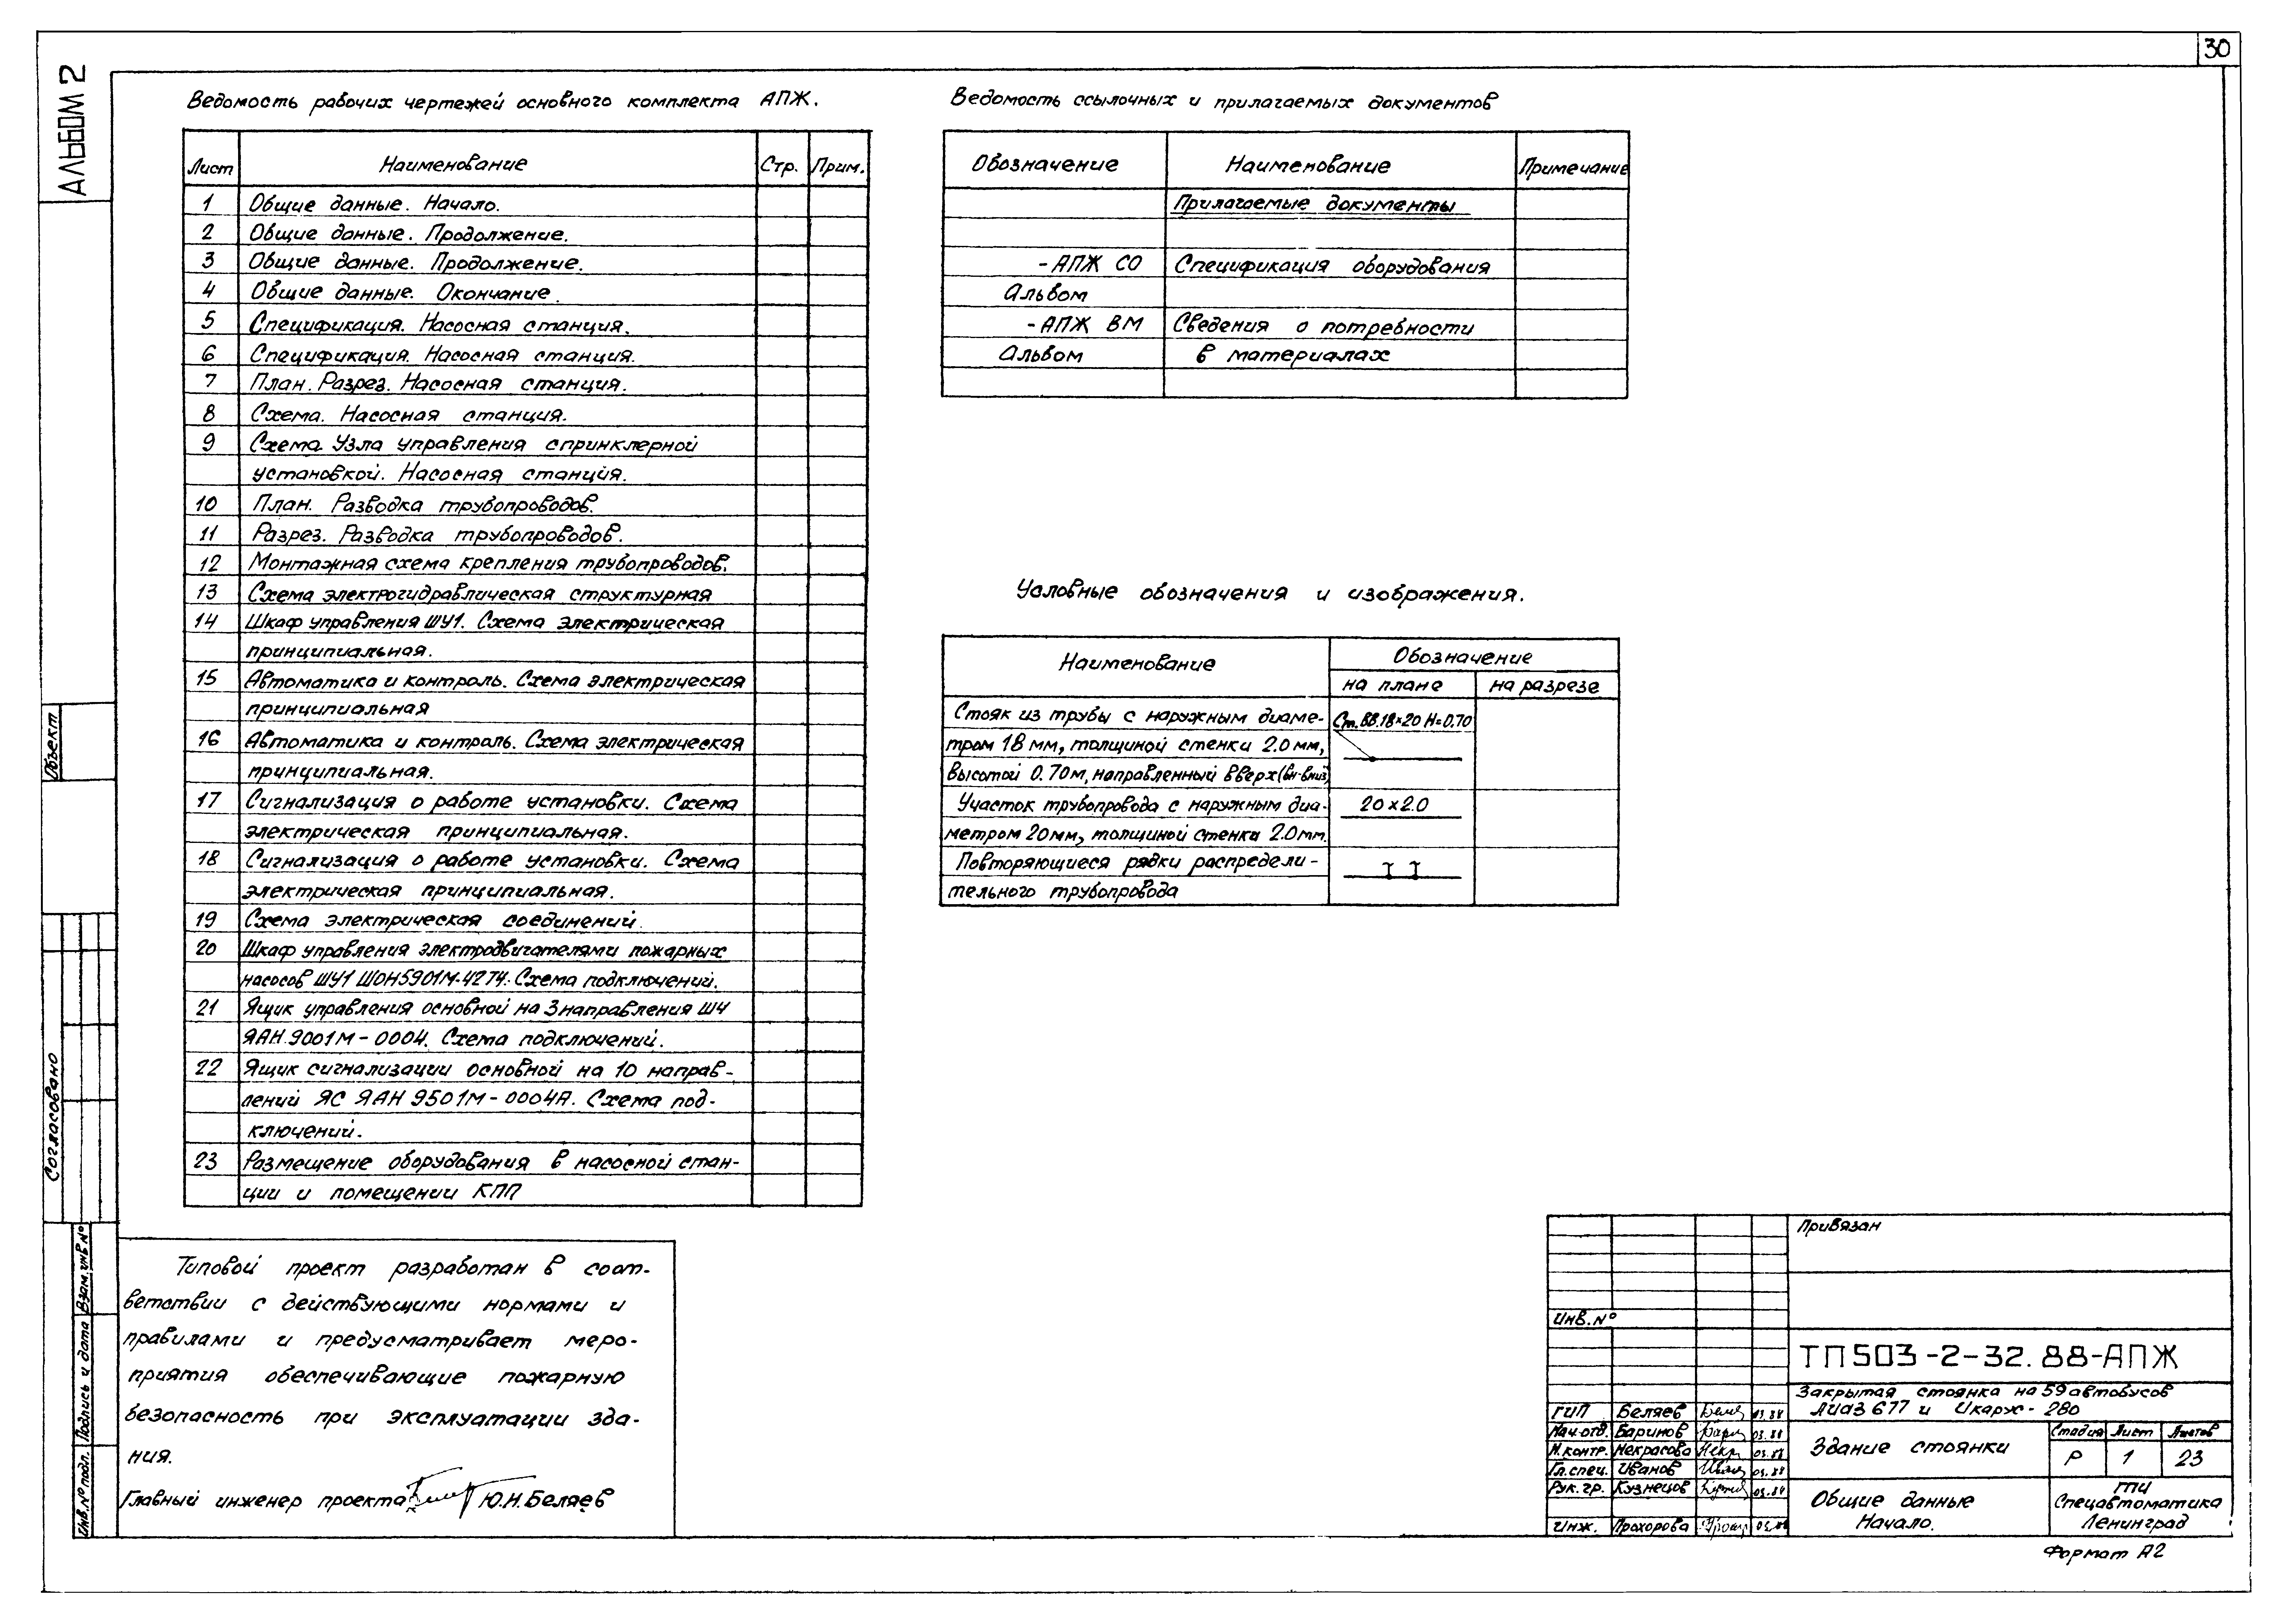 30
АЛЬБОМ 2
Ведомость рабочих чертежей основного комплекта АПЖ.
Лист Наименование Стр. Прим.
1 Общие данные. Начало.
2 Общие данные. Продолжение.
3 Общие данные. Продолжение.
4 Общие данные. Окончание.
5 Спецификация. Насосная станция.
6 Спецификация. Насосная станция.
7 План. Разрез. Насосная станция.
8 Схема. Насосная станция.
9 Схема Узла управления спринклерной
установкой. Насосная станция.
10 План. Разводка трубопроводов.
11 Разрез. Разводка трубопроводов.
12 Монтажная схема крепления трубопроводов.
13 Схема электрогидравлическая структурная
14 Шкаф управления ШУ1. Схема электрическая
принципиальная.
15 Автоматика и контроль. Схема электрическая
принципиальная
16 Автоматика и контроль. Схема электрическая
принципиальная.
17 Сигнализация о работе установки. Схема
электрическая принципиальная.
18 Сигнализация о работе установки. Схема
электрическая принципиальная.
19 Схема электрическая соединений.
20 Шкаф управления электродвигателями пожарных
насосов ШУ1 ШОН5901М-4274. Схема подключений.
21 Ящик управления основной на 3 направления Ш4
ЯАН 9001М-0004. Схема подключений.
22 Ящик сигнализации основной на 10 направ-
лений ЯС ЯАН 9501М-0004А. Схема под-
ключений.
23 Размещение оборудования в насосной стан-
ции и помещении КПП
Ведомость ссылочных и прилагаемых документов
Обозначение Наименование Примечание
Прилагаемые документы
-АПЖ СО Спецификация оборудования
Альбом
-АПЖ ВМ Сведения о потребности
Альбом в материалах
Условные обозначения и изображения.
Наименование Обозначение
на плане на разрезе
Стояк из трубы с наружным диаме- Ст.ВВ.18×20 Н=0.70
тром 18 мм, толщиной стенки 2.0 мм,
высотой 0.70м, направленный вверх (вн-вниз)
Участок трубопровода с наружным диа- 20×2.0
метром 20 мм, толщиной стенки 2.0 мм.
Повторяющиеся рядки распредели-
тельного трубопровода
Объект
Согласовано
Взам. инв №
Подпись и дата
Инв. № подл.
Типовой проект разработан в соот-
ветствии с действующими нормами и
правилами и предусматривает меро-
приятия обеспечивающие пожарную
безопасность при эксплуатации зда-
ния.
Главный инженер проекта Ю.Н. Беляев
Привязан
Инв. №
ТП 503-2-32.88-АПЖ
Закрытая стоянка на 59 автобусов
Лиаз 677 и Икарус-280
ГИП Беляев 03.88
Нач.отд. Баринов 03.88
Н.контр. Некрасова 03.88
Гл.спец. Иванов 03.88
Рук. гр. Кузнецов 03.88
Инж. Прохорова 03.88
Здание стоянки
Стадия Лист Листов
Р 1 23
Общие данные
Начало.
ГПИ
Спецавтоматика
Ленинград
Формат А2